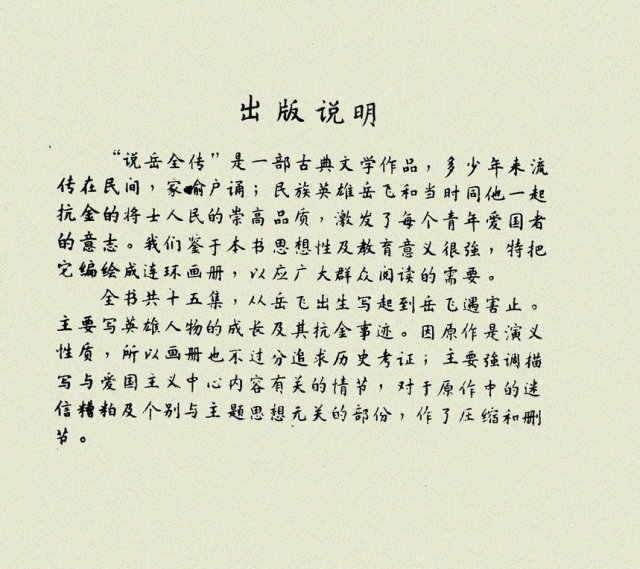 出版说明
“说岳全传”是一部古典文学作品，多少年来流
传在民间，家喻户诵；民族英雄岳飞和当时同他一起
抗金的将士人民的崇高品质，激发了每个青年爱国者
的意志。我们鉴于本书思想性及教育意义很强，特把
它编绘成连环画册，以应广大群众阅读的需要。
全书共十五集，从岳飞出生写起到岳飞遇害止。
主要写英雄人物的成长及其抗金事迹。因原作是演义
性质，所以画册也不过分追求历史考证；主要强调描
写与爱国主义中心内容有关的情节，对于原作中的迷
信糟粕及个别与主题思想无关的部份，作了压缩和删
节。